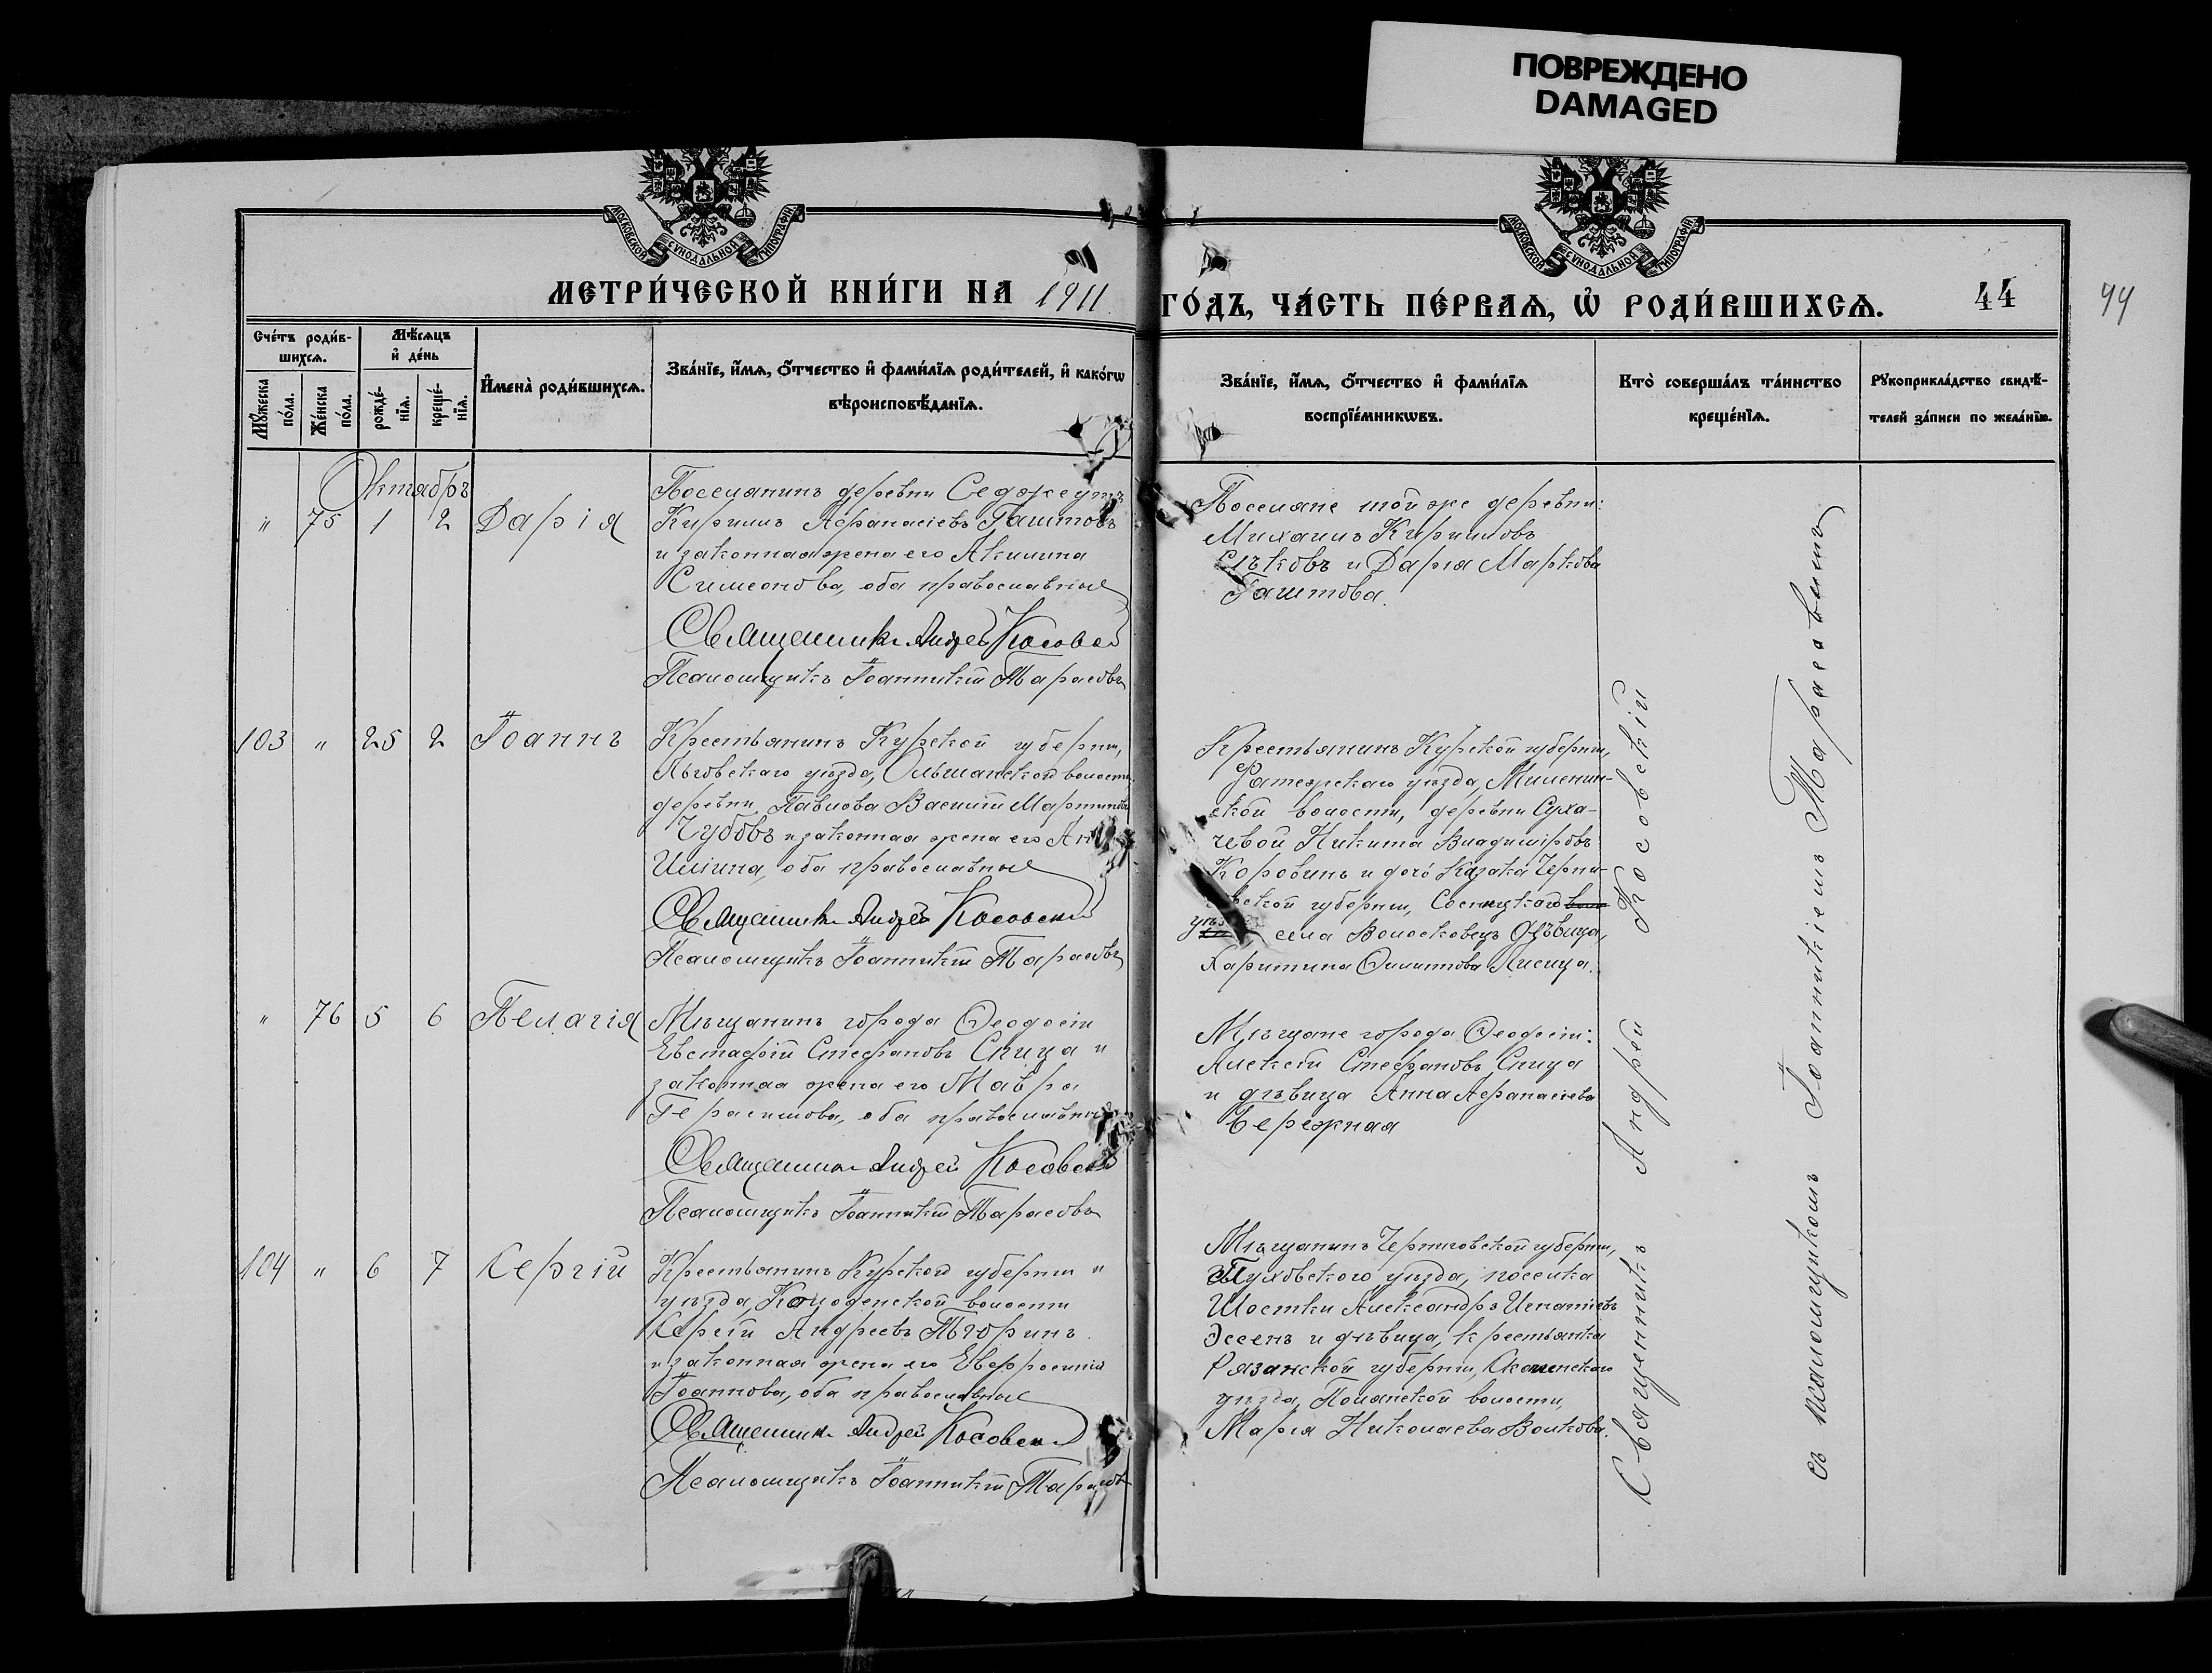 ПОВРЕЖДЕНО
DAMAGED
МОСКОВСКОЙ СѴНОДАЛЬНОЙ ТИПОГРАФІИ
МОСКОВСКОЙ СѴНОДАЛЬНОЙ ТИПОГРАФІИ
МЕТРИ́ЧЕСКОЙ КНИ́ГИ НА 1911
ГО́ДЪ, ЧА́СТЬ ПЕ́РВАѦ, Ѡ҆ РОДИ́ВШИХСѦ.
44
44
Сче́тъ роди́в-
шихсѧ.
Мѣ́сѧцъ
и҆ де́нь
Мꙋ́жеска
по́ла.
Же́нска
по́ла.
рожде́-
нїѧ.
креще́-
нїѧ.
И҆мена̀ роди́вшихсѧ.
Зва́нїе, и҆́мѧ, ѻ҆́тчество и҆ фами́лїѧ роди́телей, и҆ како́гѡ
вѣроисповѣ́данїѧ.
Зва́нїе, и҆́мѧ, ѻ҆́тчество и҆ фами́лїѧ
воспрїе́мникѡвъ.
Кто̀ соверша́лъ та́инство
креще́нїѧ.
Рꙋкоприкла́дство свидѣ́-
телей за́писи по жела́нїю.
Октябрь
" 75 1 2 Дарія
Поселянинъ деревни Седжеутъ
Кириллъ Аѳанасіевъ Гаштовъ
и законная жена его Акилина
Симеонова, оба православные
Священникъ Андрей Косовскій
Псаломщикъ Іоанникій Тарасевичъ
Поселяне той же деревни:
Михаилъ Кирилловъ
и Дарія Маркова
Гаштова.
103 " 25 2 Іоаннъ
Крестьянинъ Курской губерніи,
Льговскаго уѣзда, Ольшанской волости
деревни Павлова Василій Мартиновъ
Чубовъ и законная жена его
Иліина, оба православные
Священникъ Андрей Косовскій
Псаломщикъ Іоанникій Тарасевичъ
Крестьянинъ Курской губерніи,
Фатежскаго уѣзда, Миленин-
ской волости, деревни Суха-
чевой Никита Владиміровъ
Коровинъ и дочь казака Черни-
говской губерніи, Сосницкаго
села Волосковецъ дѣвица,
Харитина Филиппова Лисица.
" 76 5 6 Пелагія
Мѣщанинъ города Ѳеодосіи
Евстафій Стефановъ Спица и
законная жена его Мавра
Герасимова, оба православные
Священникъ Андрей Косовскій
Псаломщикъ Іоанникій Тарасевичъ
Мѣщане города Ѳеодосіи:
Алексѣй Стефановъ Спица
и дѣвица Анна Аѳанасіева
Бережная
104 " 6 7 Сергій
Крестьянинъ Курской губерніи и
уѣзда, волости
Сергій Андреевъ
и законная жена его Евфросинія
Іоаннова, оба православные
Священникъ Андрей Косовскій
Псаломщикъ Іоанникій Тарасевичъ
Мѣщанинъ Черниговской губерніи,
Глуховского уѣзда, поселка
Шостки Александръ Игнатіевъ
Эссенъ и дѣвица, крестьянка
Рязанской губерніи, Скопинского
уѣзда, Полянской волости,
Марія Николаева Волкова.
Священникъ Андрей Косовскій
съ псаломщикомъ Іоанникіемъ Тарасевичъ